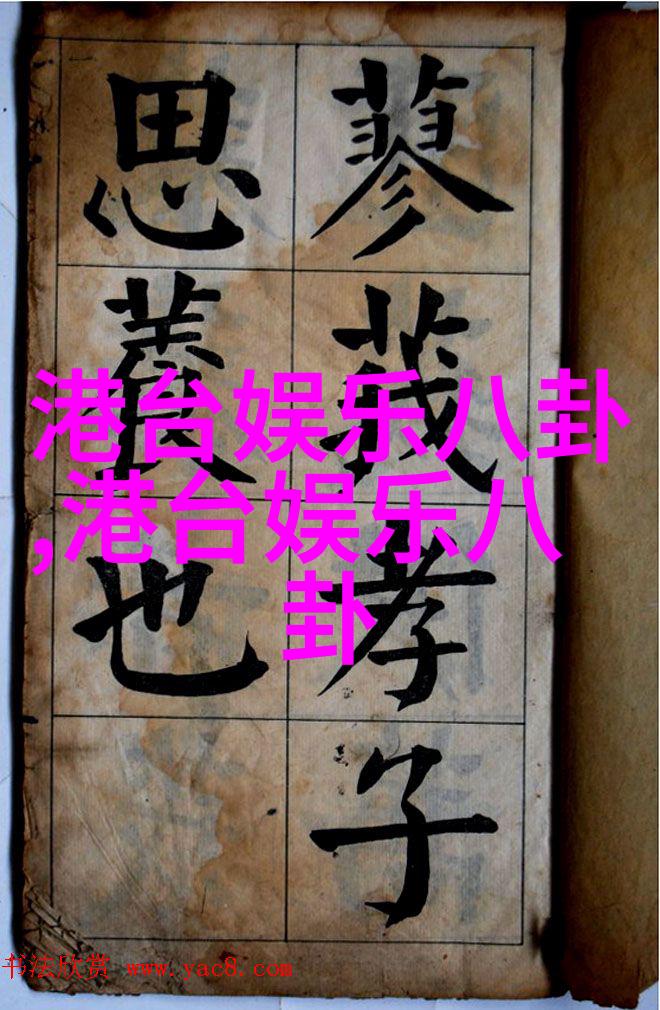 蓼莪孝子
思養也
港台娱乐八卦
,港台娱乐八
卦
书法欣赏 www.yac8.com